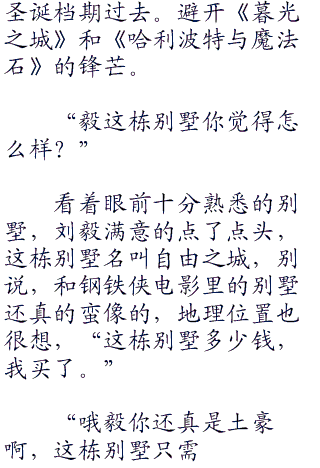 圣诞档期过去。避开《暮光
之城》和《哈利波特与魔法
石》的锋芒。
“毅这栋别墅你觉得怎
么样？”
看着眼前十分熟悉的别
墅，刘毅满意的点了点头，
这栋别墅名叫自由之城，别
说，和钢铁侠电影里的别墅
还真的蛮像的，地理位置也
很想，“这栋别墅多少钱，
我买了。”
“哦毅你还真是土豪
啊，这栋别墅只需